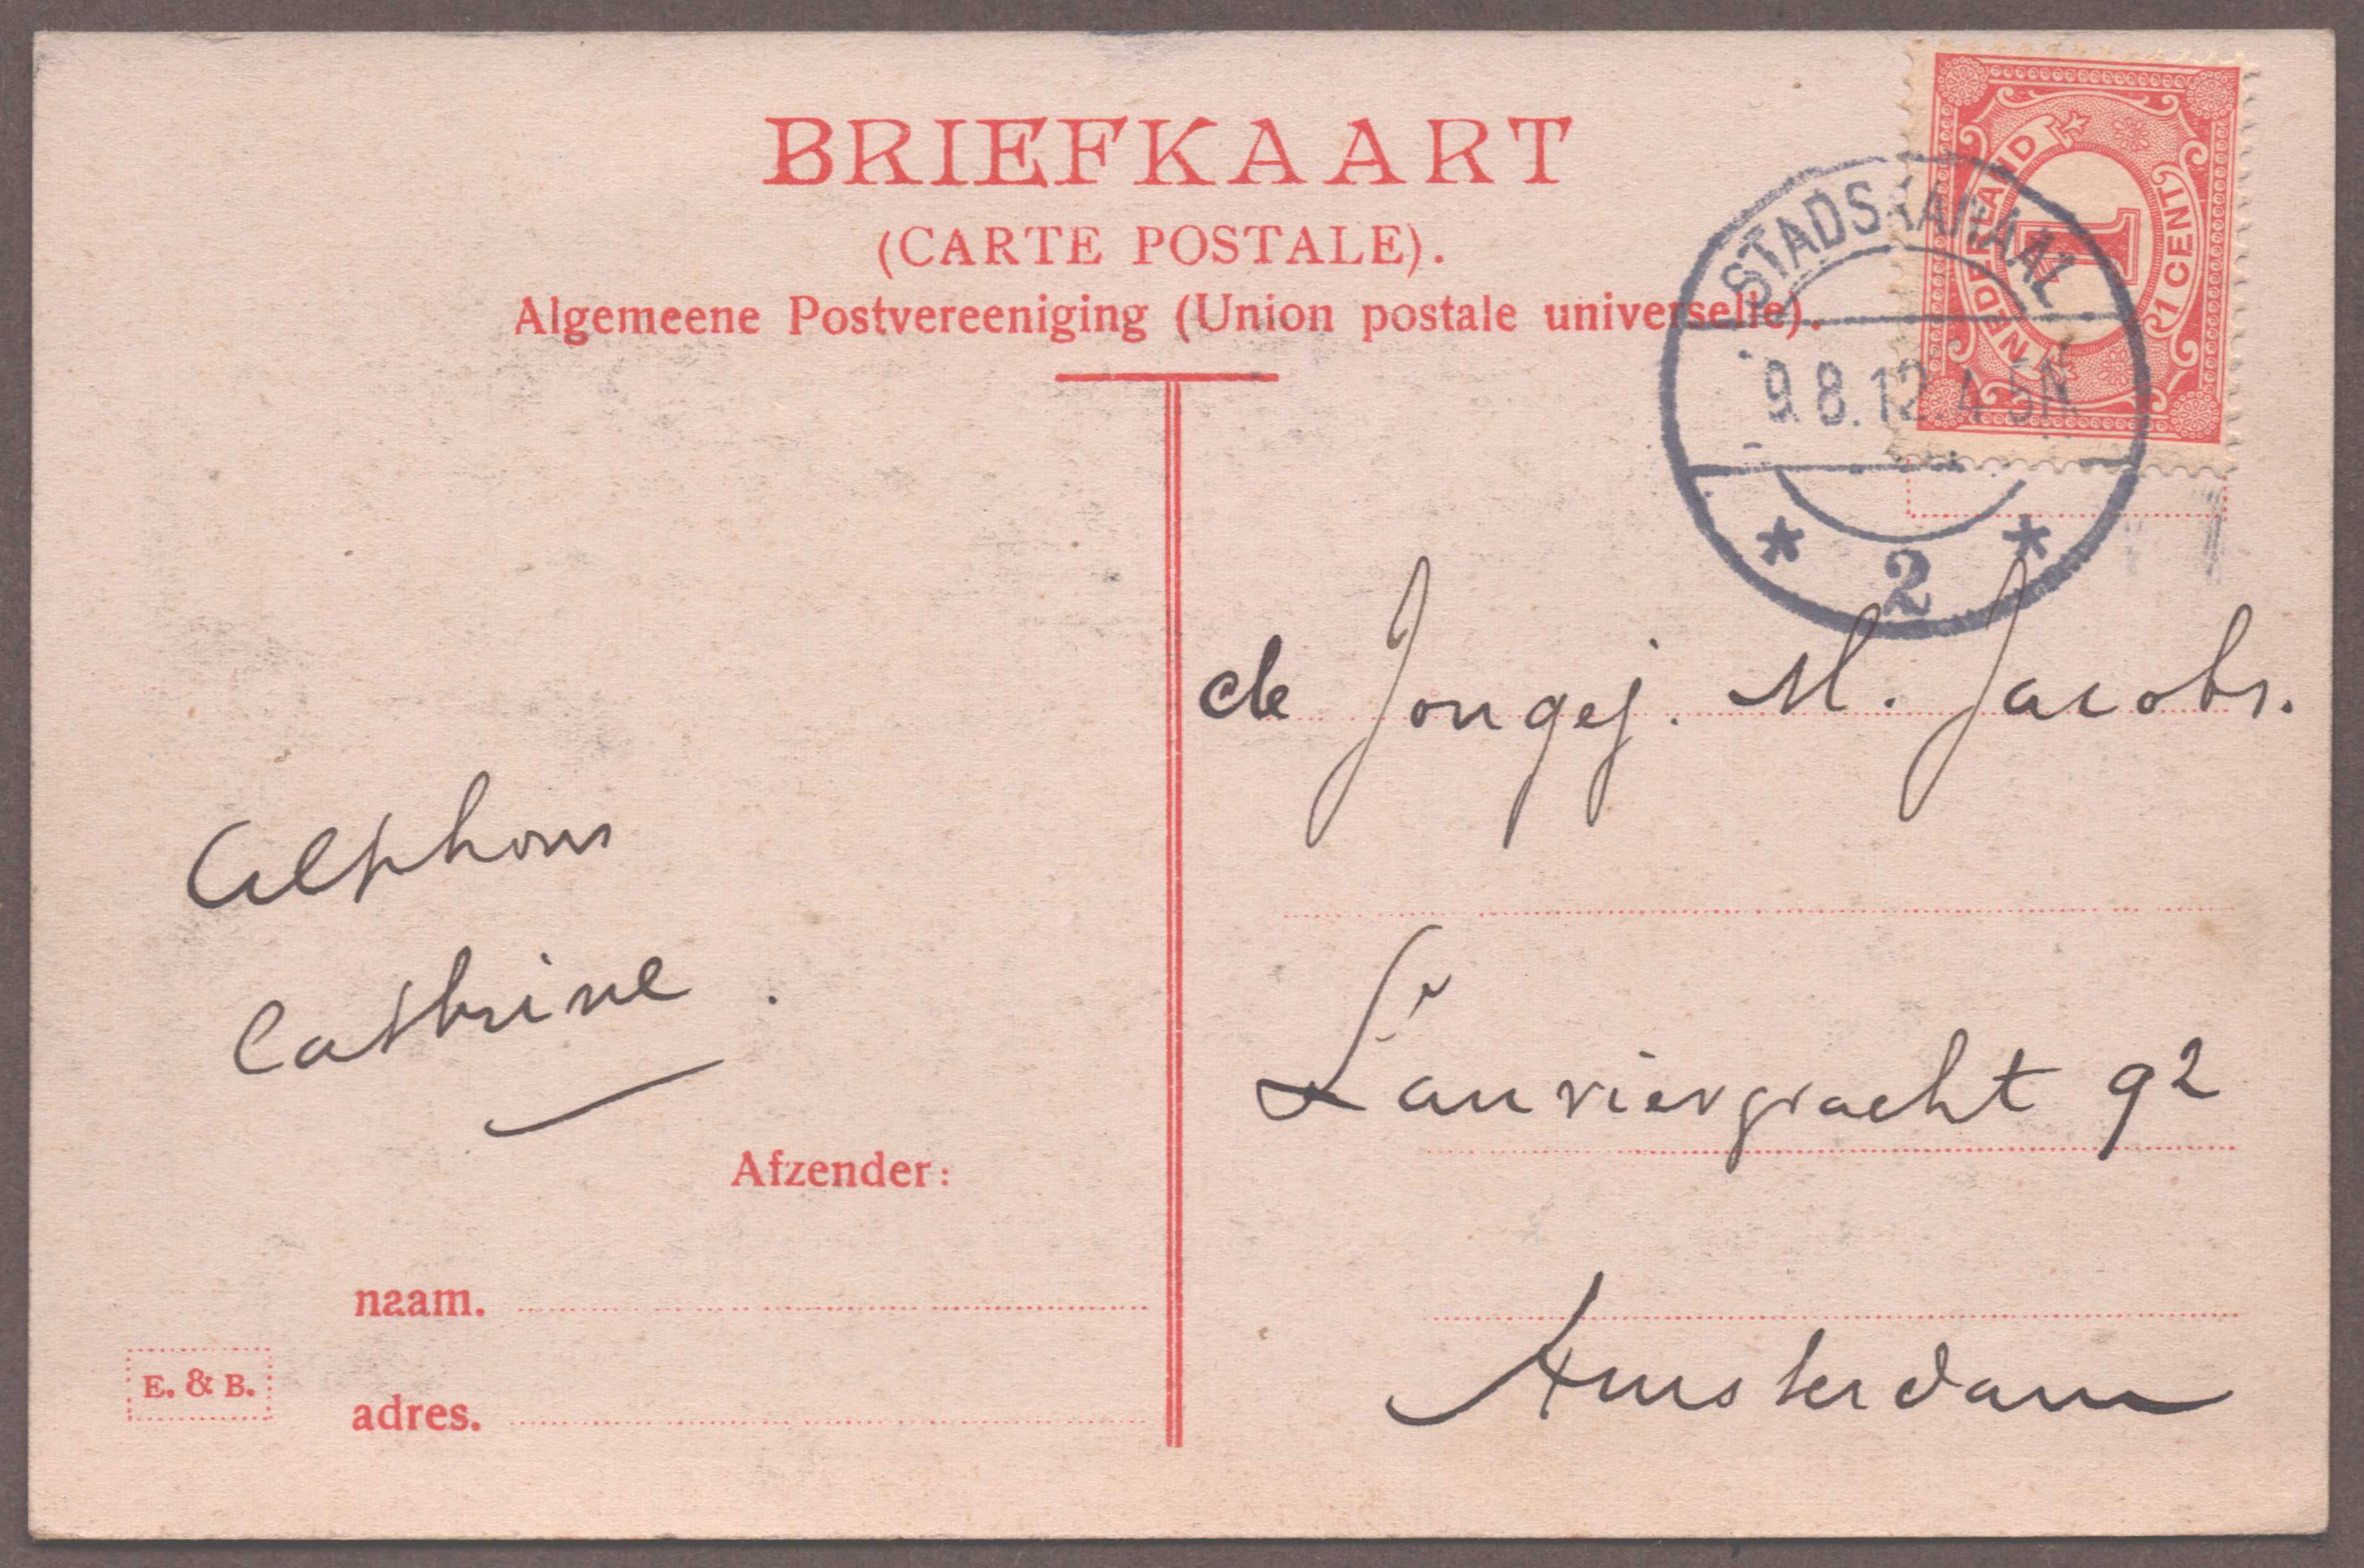 BRIEFKAART
(CARTE POSTALE).
Algemeene Postvereeniging (Union postale universelle).
NEDERLAND
1
1 CENT
STADSKANAAL
9.8.12.4-5N
* 2 *
de Jongej. M. Jacobs.
Lauriergracht 92
Amsterdam
Alphons
Cathrine.
Afzender:
naam.
adres.
E. & B.